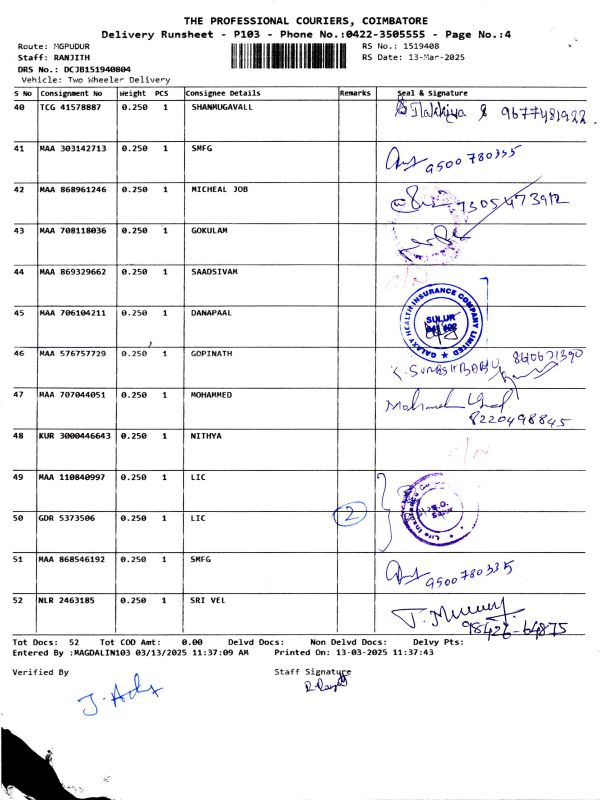 THE PROFESSIONAL COURIERS, COIMBATORE
Delivery Runsheet - P103 - Phone No.:0422-3505555 - Page No.:4
Route: MGPUDUR RS No.: 1519408
Staff: RANJITH RS Date: 13-Mar-2025
DRS No.: DCJB1S1940804
Vehicle: Two Wheeler Delivery
S No Consignment No Weight PCS Consignee Details Remarks Seal & Signature
40 TCG 41578887 0.250 1 SHANMUGAVALL 9677481922
41 MAA 303142713 0.250 1 SMFG 9500780335
42 MAA 868961246 0.250 1 MICHEAL JOB 7305473912
43 MAA 708118036 0.250 1 GOKULAM
44 MAA 869329662 0.250 1 SAADSIVAM
45 MAA 706104211 0.250 1 DANAPAAL GALAXY HEALTH INSURANCE COMPANY LIMITED SULUR
46 MAA 576757729 0.250 1 GOPINATH K. SURESH BABU
47 MAA 707044051 0.250 1 MOHAMMED Mohamed
8220498845
48 KUR 3000446643 0.250 1 NITHYA
49 MAA 110840997 0.250 1 LIC
50 GDR 5373506 0.250 1 LIC 2
51 MAA 868546192 0.250 1 SMFG 9500780335
52 NLR 2463185 0.250 1 SRI VEL 98426-64875
Tot Docs: 52 Tot COD Amt: 0.00 Delvd Docs: Non Delvd Docs: Delvy Pts:
Entered By :MAGDALIN103 03/13/2025 11:37:09 AM Printed On: 13-03-2025 11:37:43
Verified By Staff Signature